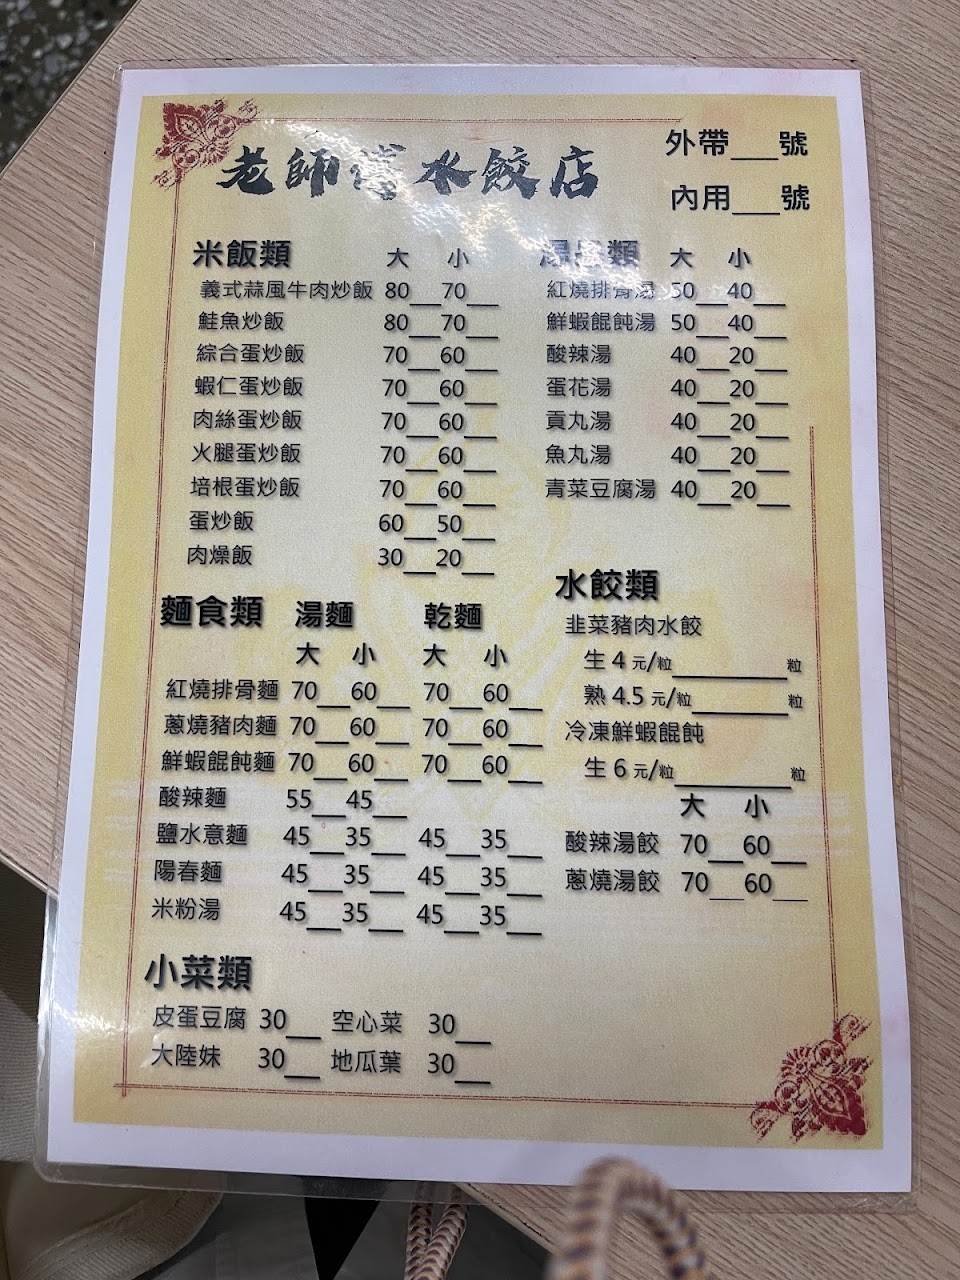 老師傅水餃店
外帶___號
內用___號
米飯類 大 小
義式蒜風牛肉炒飯 80__70__
鮭魚炒飯 80__70__
綜合蛋炒飯 70__60__
蝦仁蛋炒飯 70__60__
肉絲蛋炒飯 70__60__
火腿蛋炒飯 70__60__
培根蛋炒飯 70__60__
蛋炒飯 60__50__
肉燥飯 30__20__
湯品類 大 小
紅燒排骨湯 50__40__
鮮蝦餛飩湯 50__40__
酸辣湯 40__20__
蛋花湯 40__20__
貢丸湯 40__20__
魚丸湯 40__20__
青菜豆腐湯 40__20__
麵食類 湯麵 乾麵
大 小 大 小
紅燒排骨麵 70__60__ 70__60__
蔥燒豬肉麵 70__60__ 70__60__
鮮蝦餛飩麵 70__60__ 70__60__
酸辣麵 55__45__
鹽水意麵 45__35__ 45__35__
陽春麵 45__35__ 45__35__
米粉湯 45__35__ 45__35__
水餃類
韭菜豬肉水餃
生 4 元/粒________粒
熟 4.5 元/粒_______粒
冷凍鮮蝦餛飩
生 6 元/粒________粒
大 小
酸辣湯餃 70__60__
蔥燒湯餃 70__60__
小菜類
皮蛋豆腐 30__ 空心菜 30__
大陸妹 30__ 地瓜葉 30__